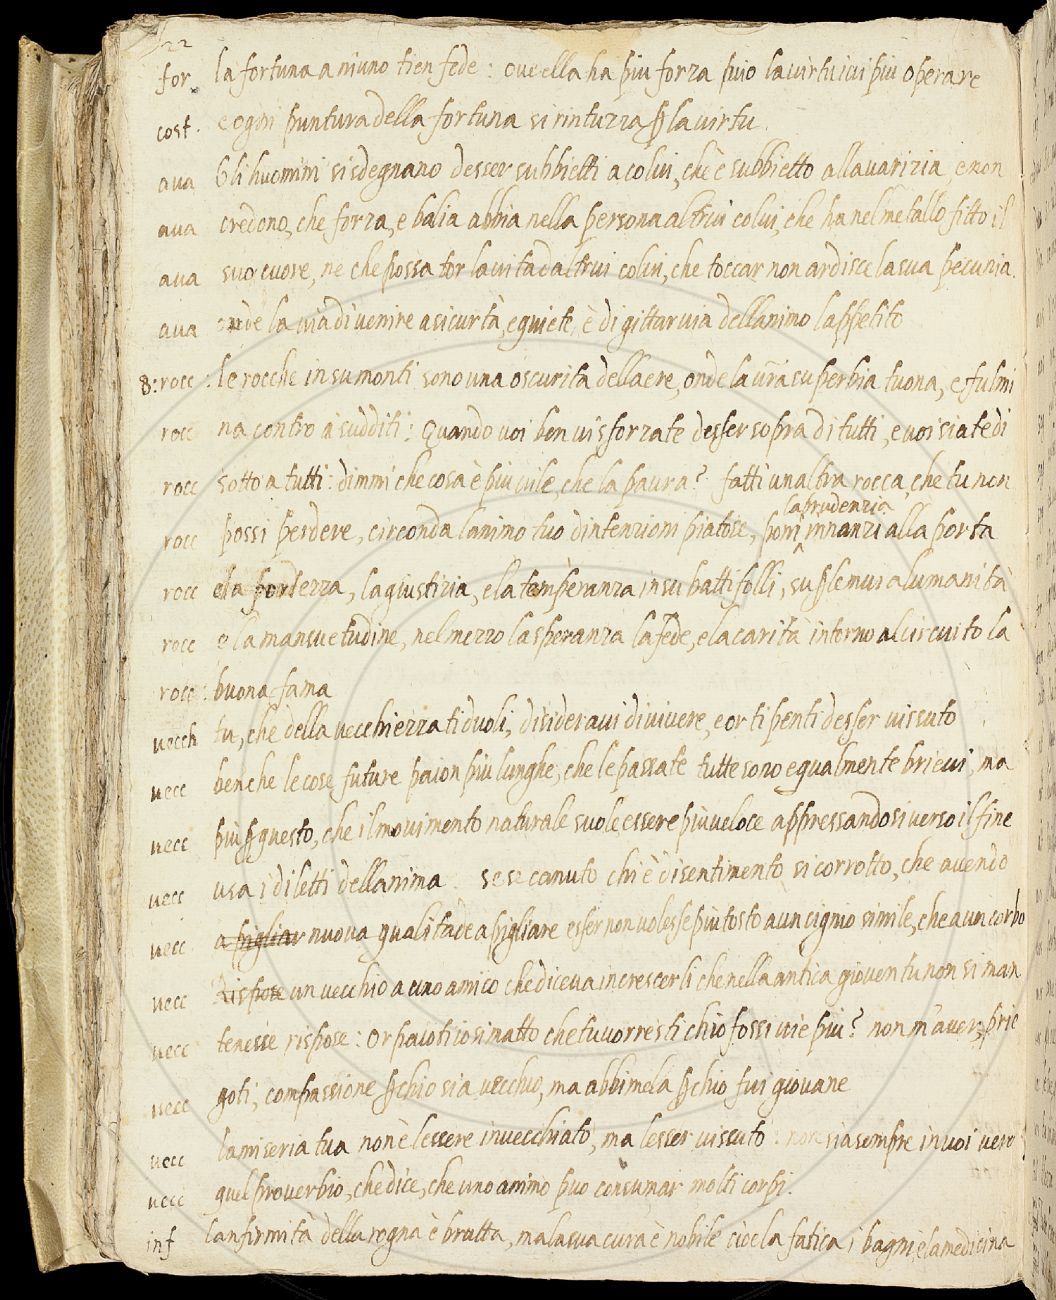 22
for la fortuna a niuno tien fede: ove ella ha piu forza puio la virtu ivi piu operare
cost. e ogni puntura della fortuna si rintuzza ꝑ la virtu.
ava Gli huomini si sdegnano desser subbietti a colui, che è subbietto allavarizia, e non
ava credono, che forza, e balia abbia nella persona altrui colui, che ha nel metallo fitto il
ava suo cuore, ne che possa tor la vita ad altrui colui, che toccar non ardisce la sua pecunia.
ava la via di venire a sicurtà, e quiete, è di gittar via dellanimo lappetito
8: rocc: le rocche in su monti sono una oscurità dellaere, onde la vr̃a superbia tuona, e fulmi
rocc na contro à sudditi: Quando voi ben vi sforzate desser sopra di tutti, e voi siate di
rocc sotto a tutti: dimmi che cosa è piu vile, che la paura? fatti unaltra rocca, che tu non
laprudenzia
rocc possi perdere, circonda lanimo tuo dintenzioni piatose, poni innanzi alla porta
rocc e la fortezza, la giustizia, e la temperanza in su battifolli, su ꝑ le mura lumanità
rocc e la mansuetudine, nel mezzo la speranza la fede, e la carità intorno al circuito la
rocc: buona fama
vecch tu, che della vecchiezza ti duoli, disideravi di vivere, e or ti penti desser vissuto
vecc benche le cose future paion piu lunghe, che le passate tutte sono egualmente brievi, ma
vecc più ꝑ questo, che il movimento naturale suole essere più veloce appressandosi verso il fine
vecc usa i diletti dellanima. se se canuto chi è di sentimento si corrotto, che avendo
vecc a pigliar nuova qualitade a pigliare esser non volesse più tosto a un cignio simile, che a un corbo
vecc Rispose un vecchio a uno amico che diceva increscerli che nella antica gioventu non si man
vecc tenesse rispose: Or paioti io sì matto che tu vorresti chio fossi vie piu? non m'aver, prie
vecc goti, compassione ꝑchio sia vecchio, ma abbimela ꝑchio fui giovane
vecc la miseria tua non è lessere invecchiato, ma lesser vissuto: non sia sempre in voi vero
vecc quel proverbio, che dice, che uno animo puo consumar molti corpi.
inf lanfirmità della rogna è brutta, ma la sua cura è nobile cioè la fatica i bagni, e la medicina